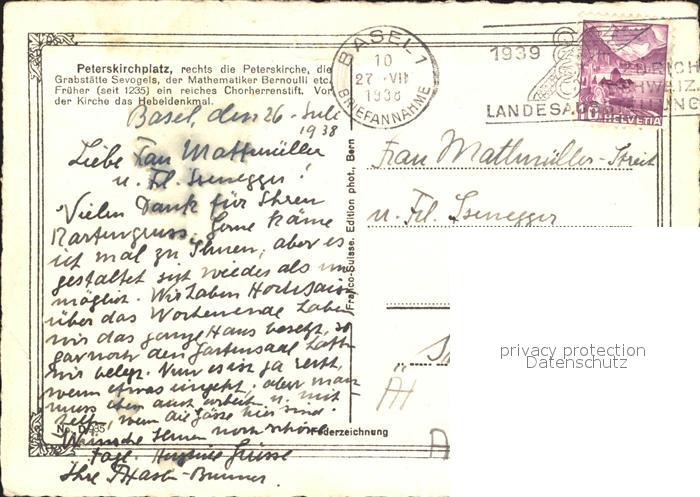 Peterskirchplatz, rechts die Peterskirche, die
Grabstätte Sevogels, der Mathematiker Bernoulli etc.
Früher (seit 1235) ein reiches Chorherrenstift. Vor
der Kirche das Hebeldenkmal.
BASEL 1
10
27·VII
1938
BRIEFANNAHME
1939
LANDESAUS
HELVETIA
Basel, den 26. Juli
1938
Liebe Frau Mattmüller
u. Frl. Isenegger!
Vielen Dank für Ihren
Kartengruss. Gerne käme
ich mal zu Ihnen, aber es
gestaltet sich wieder als un-
möglich. Wir haben Hochsaison
über das Wochenende haben
wir das ganze Haus besetzt, so
gar noch den Gartensaal
wir belegt. Nun es ist ja recht,
wenn etwas eingeht, aber man
muss eben auch arbeiten u. mit
wenn die Gäste hier sind.
Wünsche Ihnen noch schöne
Tage. Grüsse
Ihre -Brunner.
Franco-Suisse. Edition phot., Bern
No. D
Federzeichnung
Frau Mattmüller-Streit
u. Frl. Isenegger
privacy protection
Datenschutz